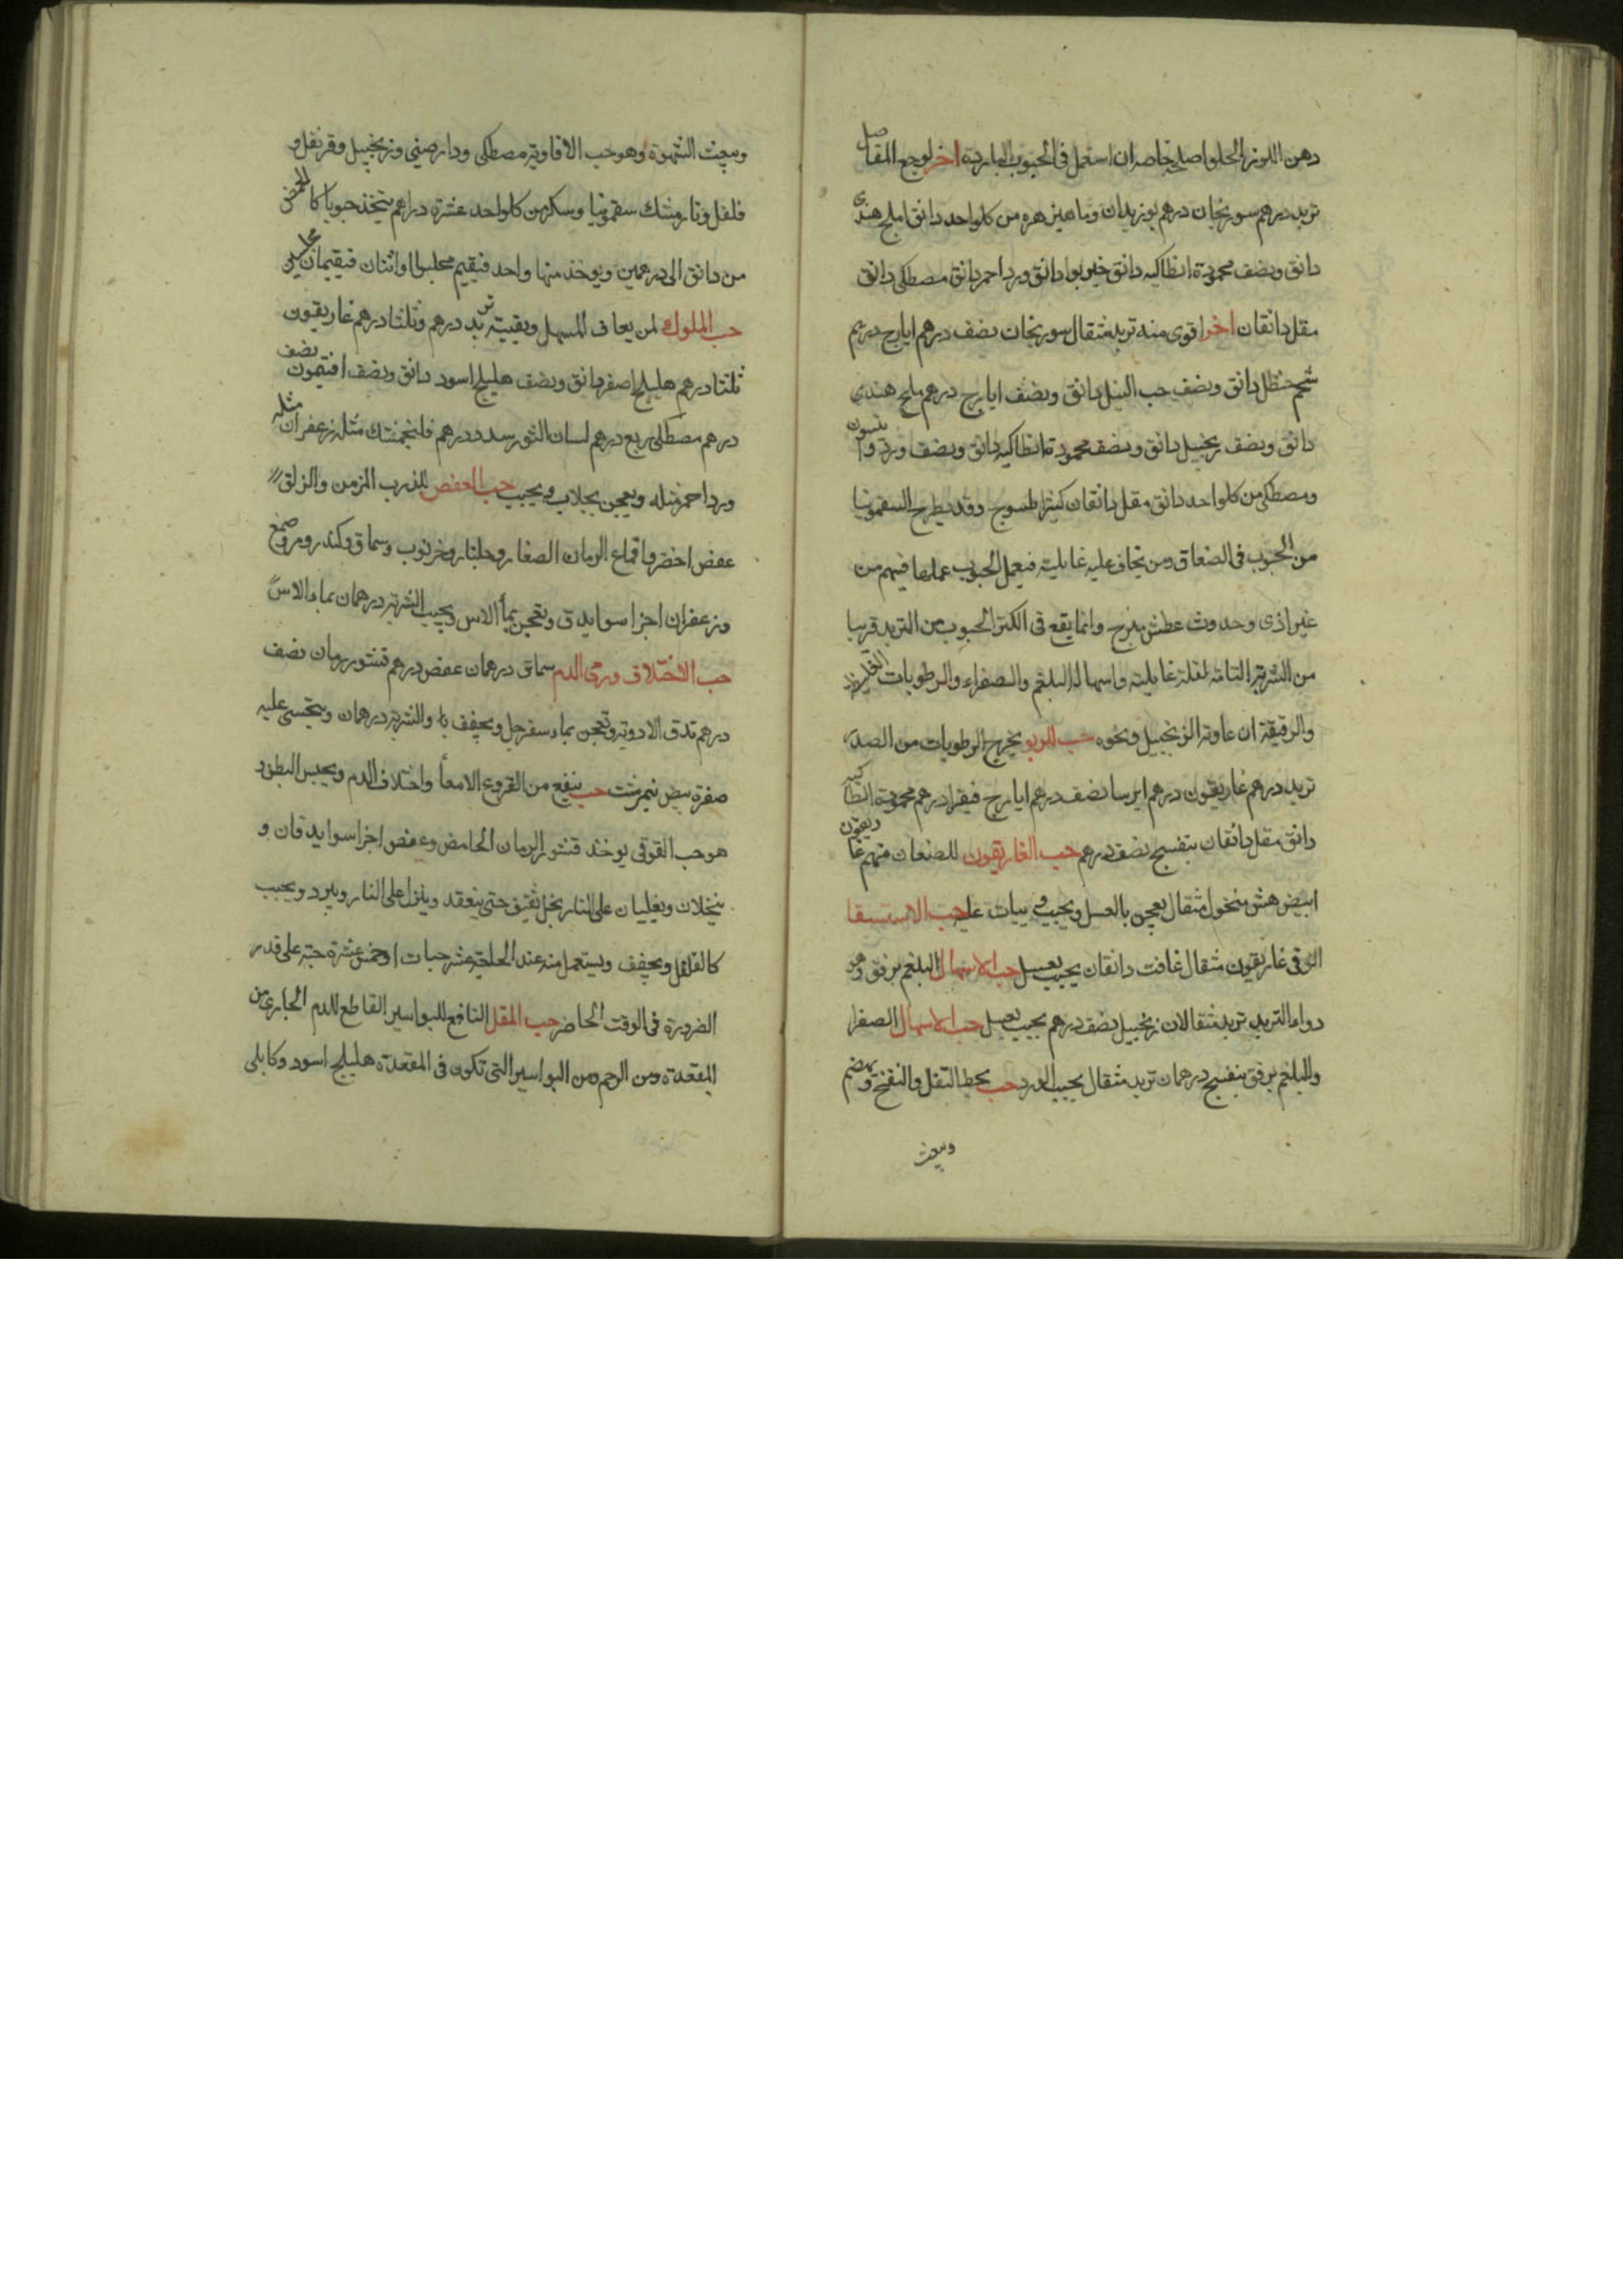 دهن اللوز الحلو اصلحه خاصه ان استعمل فى الحبوب الباردة اخر لوجع المفاصل
تربد درهم سورنجان درهم بوزيدان وماهيز هره من كل واحد دانق املج هندى
دانق ونصف محمودة انطاكيه دانق خير بوا دانق ورد احمر دانق مصطكى دانق
مقل دانقان اخر اقوى منه تربد مثقال سورنجان نصف درهم ايارج درهم
شحم حنظل دانق ونصف حب النيل دانق ونصف ايارج درهم ملح هندى
دانق ونصف زنجبيل دانق ونصف محمودة انطاكيه دانق ونصف ورد وانيسون
ومصطكى من كل واحد دانق مقل دانقان كثيرا طسوج وقد يطرح السقمونيا
من الحبوب فى الضعاف ومن يخاف عليه غايلته فيعمل الحبوب عملها فيهم من
غير اذى وحدوث عطش مبرح وانما يقع فى اكثر الحبوب من التربد قريبا
من الشربة التامة لقلة غايلته واسهاله البلغم والصفراء والرطوبات الغليظة
والرقيقة ان عاونه الزنجبيل ونحوه حب للربو يخرج الرطوبات من الصدر
تربد درهم غاريقون درهم ايرسا نصف درهم ايارج فيقرا درهم محمودة انطاكيه
دانق مقل دانقان بنفسج نصف درهم حب الغاريقون للضعفا منهم غاريقون
ابيض هش منخول مثقال يعجن بالعسل ويحبب ويبات عليه حب الاستسقا
الزقى غاريقون مثقال غافت دانقان يحبب بعسل حب الاسهال البلغم برفق وهو
دواء التربد تربد مثقالان زنجبيل نصف درهم يحبب بعسل حب الاسهال الصفرا
والبلغم برفق بنفسج درهمان تربد مثقال يحبب الفرد حب يحط الثفل والنفخ ويهضم
ويبعث
ويبعث الشهوة وهو حب الافاويه مصطكى ودارصينى وزنجبيل وقرنفل و
فلفل ونارمشك سقمونيا وسكر من كل واحد عشرة دراهم يتخذ حبوبا كالحمص
من دانق الى درهمين ويوخذ منها واحد فيقيم مجلسا او اثنان فيقيمان مجلسين
حب الملوك لمن يعاف المسهل وبقيته تربد درهم وثلثا درهم غاريقون
ثلثا درهم هليلج اصفر دانق ونصف هليلج اسود دانق ونصف افتيمون نصف
درهم مصطكى ربع درهم لسان الثور سدد درهم فلنجمشك مثله زعفران مثله
ورد احمر مثله ويعجن بجلاب ويحبب حب العفص للذرب المزمن والزلق
عفص اخضر واقماع الرمان الصغار وجلنار وخرنوب وسماق وكندر ومر وصمغ
وزعفران اجزا سوا يدق ويعجن بماء الاس ويحبب الشربة درهمان بماء الاس
حب الاختلاف ورمى الدم سماق درهمان عفص درهم قشور رمان نصف
درهم تدق الادوية وتعجن بماء سفرجل ويجفف والشربة درهمان ويتحسى عليه
صفرة بيض نيمرشت حب ينفع من القروح الامعا واختلاف الدم ويحبس البطن
هو حب القوقى يوخذ قشور الرمان الحامض وعفص اجزا سوا يدقان و
ينخلان ويغليان على النار بخل ثقيف حتى ينعقد وينزل على النار ويبرد ويحبب
كالفلفل ويجفف ويستعمل منه عند الحاجة عشر حبات او خمس عشرة حبة على قدر
الضرورة فى الوقت الحاضر حب المقل النافع للبواسير القاطع للدم الجارى من
المقعدة ومن الرحم ومن البواسير التى تكون فى المقعدة هليلج اسود وكابلى